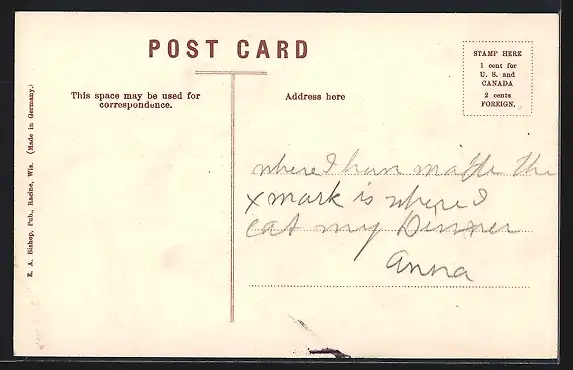 POST CARD
STAMP HERE
1 cent for
U. S. and
CANADA
2 cents
FOREIGN.
This space may be used for
correspondence.
Address here
E. A. Bishop, Pub., Racine, Wis. (Made in Germany.)
where I have made the
x mark is where I
eat my Dinner
Anna